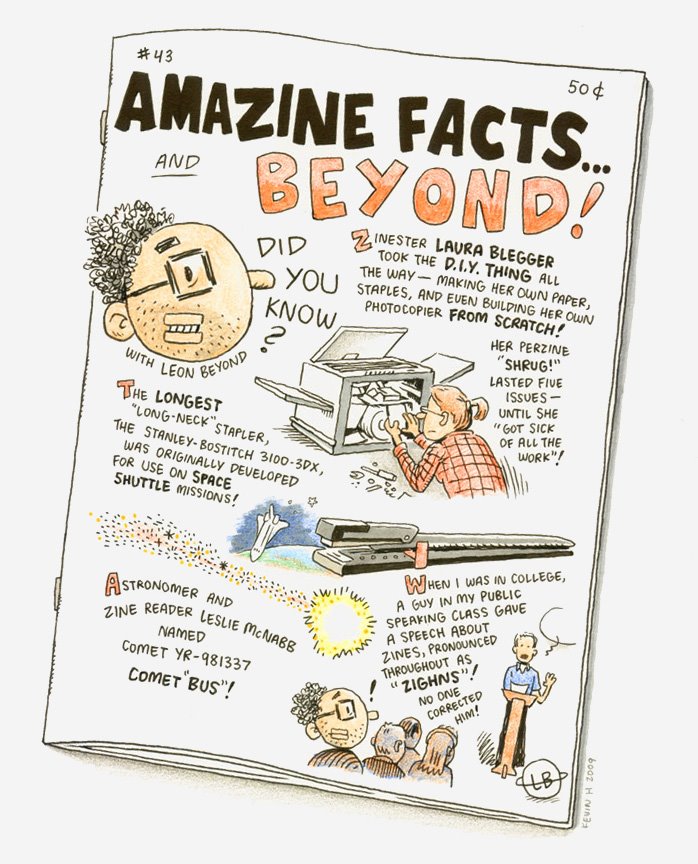 #43
50¢
AMAZINE FACTS...
AND
BEYOND!
DID
YOU
KNOW
?
WITH LEON BEYOND
ZINESTER LAURA BLEGGER
TOOK THE D.I.Y. THING ALL
THE WAY — MAKING HER OWN PAPER,
STAPLES, AND EVEN BUILDING HER OWN
PHOTOCOPIER FROM SCRATCH!
HER PERZINE
"SHRUG!"
LASTED FIVE
ISSUES —
UNTIL SHE
"GOT SICK
OF ALL THE
WORK"!
THE LONGEST
"LONG-NECK" STAPLER,
THE STANLEY-BOSTITCH 3100-3DX,
WAS ORIGINALLY DEVELOPED
FOR USE ON SPACE
SHUTTLE MISSIONS!
ASTRONOMER AND
ZINE READER LESLIE McNABB
NAMED
COMET YR-981337
COMET "BUS"!
WHEN I WAS IN COLLEGE,
A GUY IN MY PUBLIC
SPEAKING CLASS GAVE
A SPEECH ABOUT
ZINES, PRONOUNCED
THROUGHOUT AS
"ZIGHNS"!
NO ONE
CORRECTED
HIM!
!
LB
KEVIN H 2009